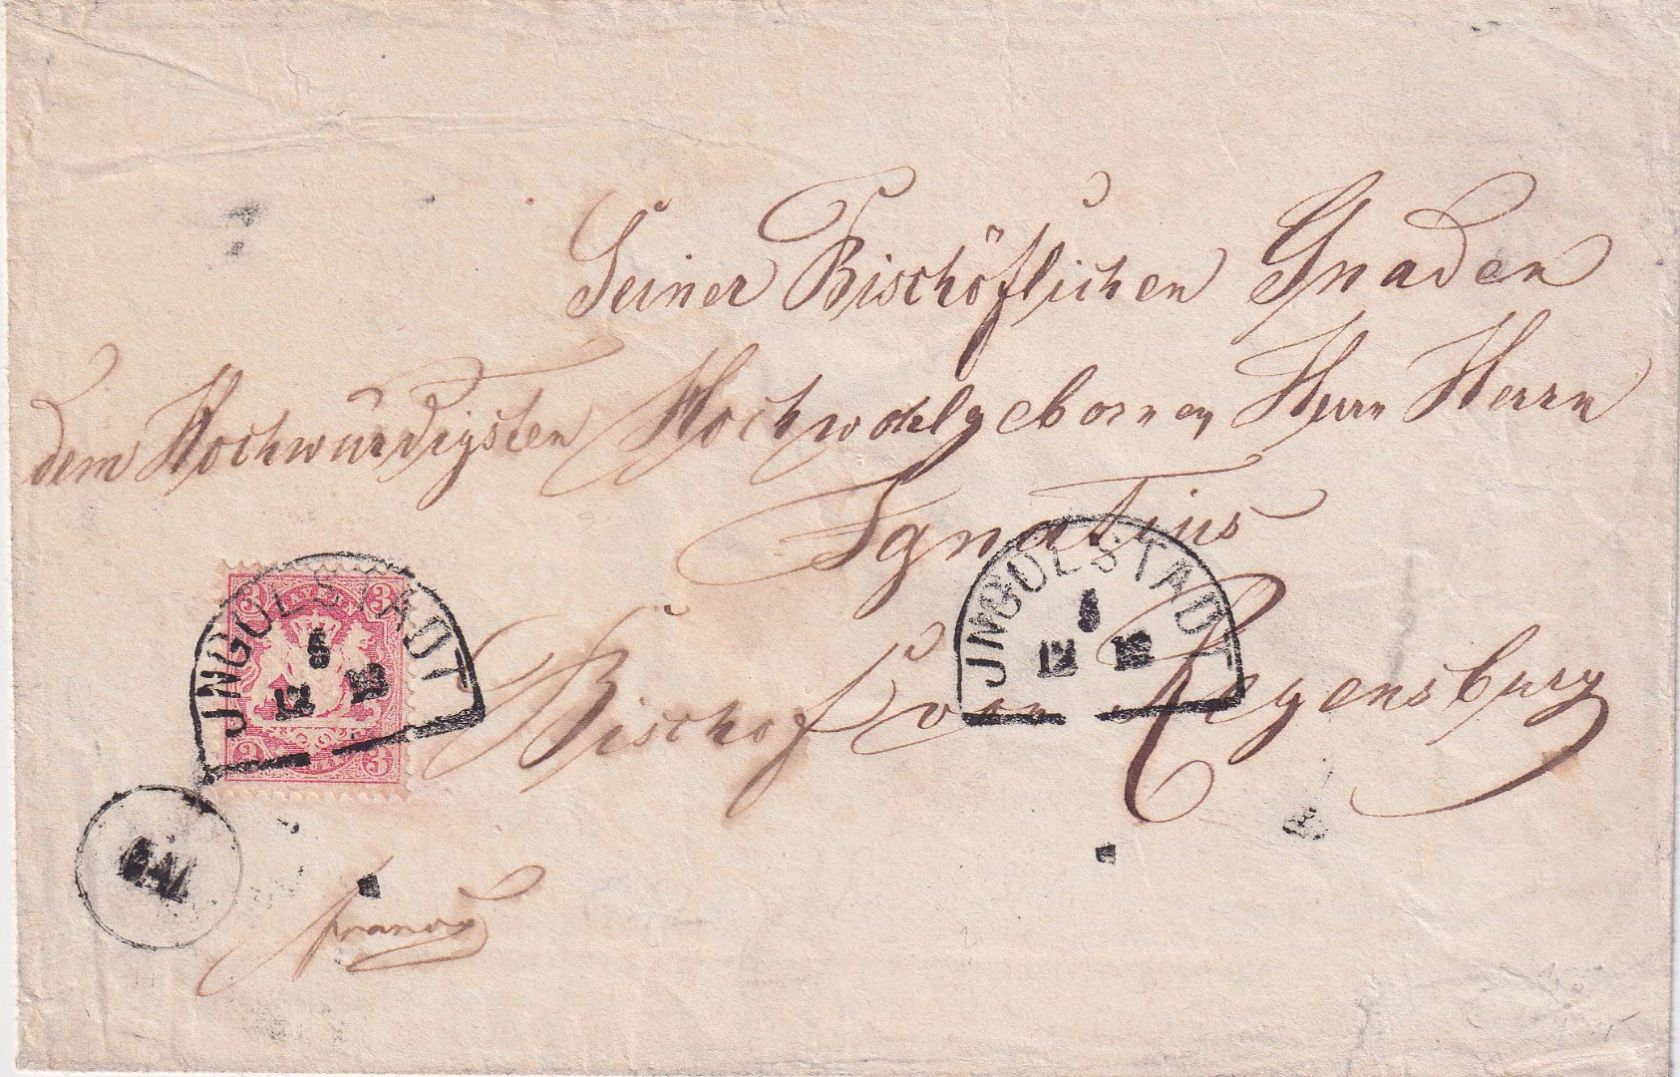 Seiner Bischöflichen Gnaden
dem Hochwürdigsten Hochwohlgebornen Herrn Herrn
Ignatius
Bischof von Regensburg
JNGOLSTADT
12
JNGOLSTADT
12
BAYERN
3 3
3 3
franco